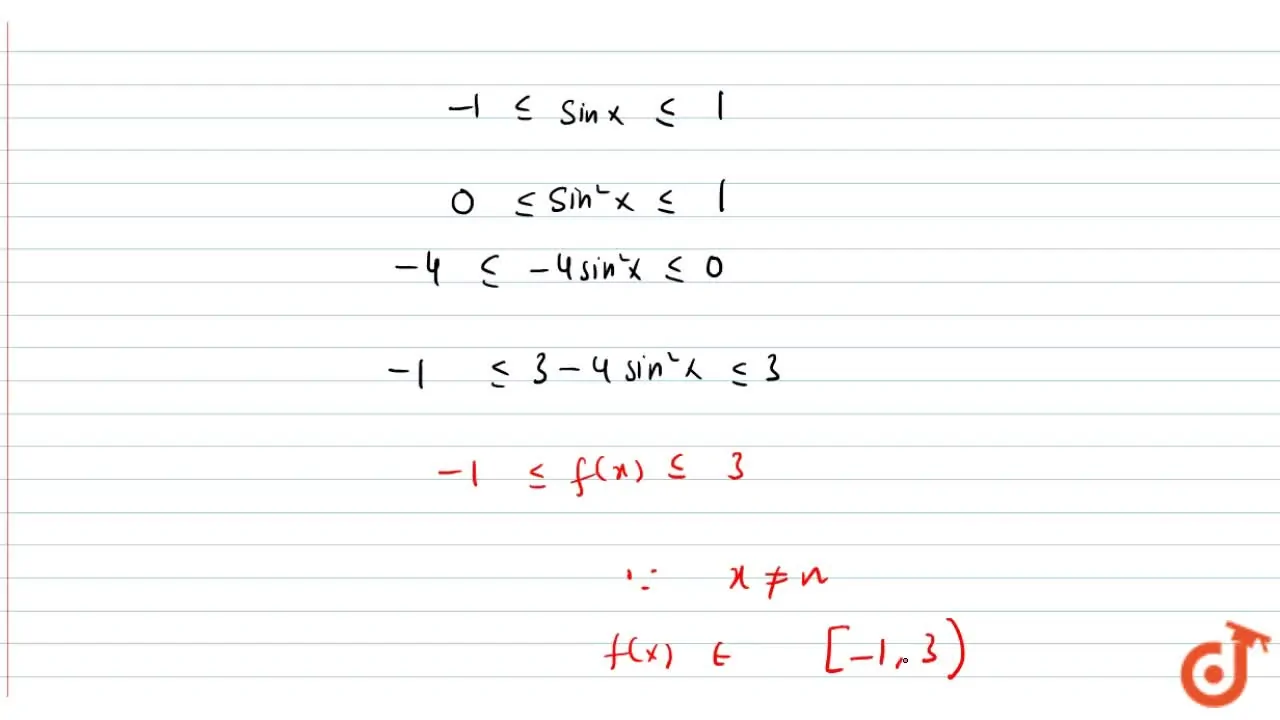 -1 ≤ sinx ≤ 1
0 ≤ Sin²x ≤ 1
-4 ≤ -4sin²x ≤ 0
-1 ≤ 3-4 sin²x ≤ 3
-1 ≤ f(x) ≤ 3
∵ x ≠ n
f(x) ∈ [-1, 3)